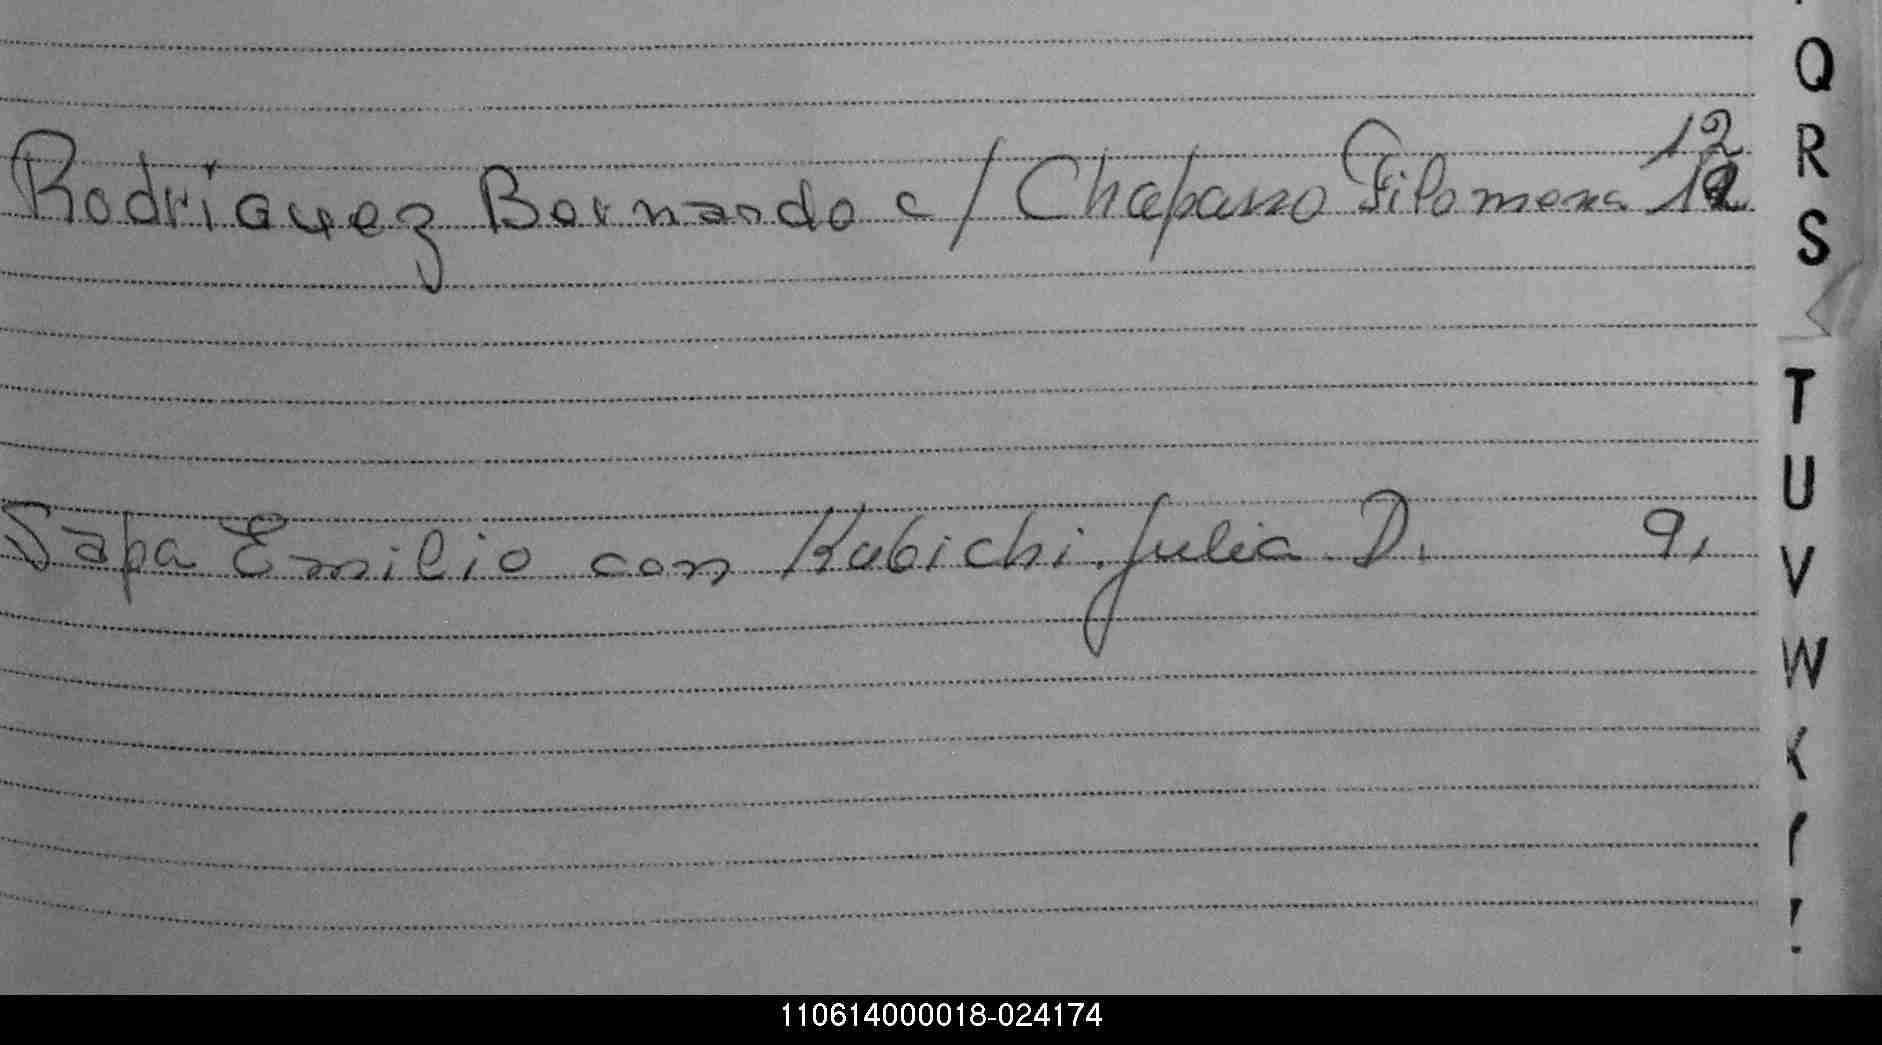 Q
R
Rodríguez Bernardo c/ Chaparro Filomena 12
12
S
T
U
Sapa Emilio con Kubichi Julia D. 9,
V
W
110614000018-024174